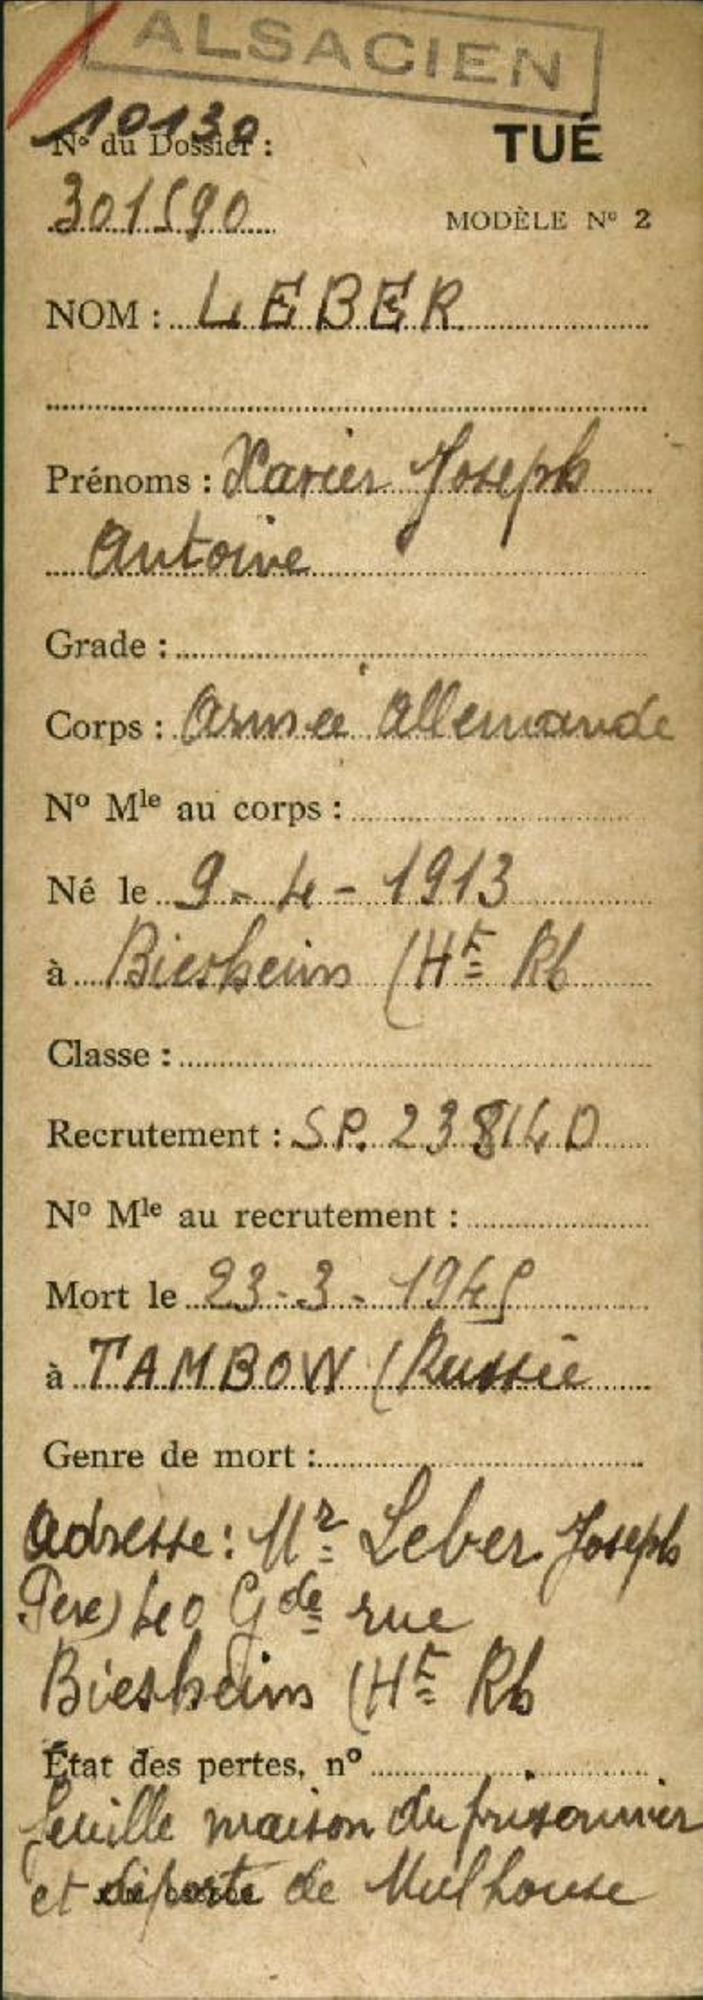 ALSACIEN
10130
N° du Dossier :
TUÉ
301590
MODÈLE N° 2
NOM : LEBER
Prénoms : Xavier Joseph
Antoine
Grade :
Corps : Armée Allemande
N° Mle au corps :
Né le 9-4-1913
à Biesheim (Ht Rh
Classe :
Recrutement : S.P. 23814 D
N° Mle au recrutement :
Mort le 23-3-1945
à TAMBOW (Russie
Genre de mort :
Adresse : Mr Leber Joseph
Père) 40 Gde rue
Biesheim (Ht Rh
État des pertes, n°
feuille maison du prisonnier
et déporté de Mulhouse